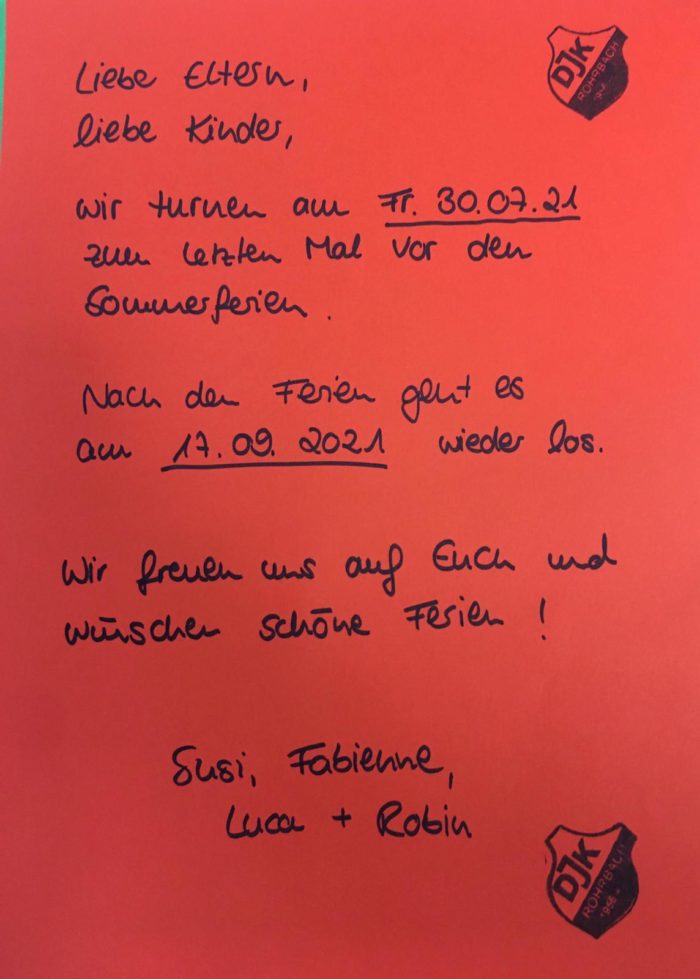 DJK
ROHRBACH
Liebe Eltern,
liebe Kinder,
wir turnen am Fr. 30.07.21
zum letzten Mal vor den
Sommerferien.
Nach den Ferien geht es
am 17.09.2021 wieder los.
Wir freuen uns auf Euch und
wünschen schöne Ferien!
Susi, Fabienne,
Luca + Robin
DJK
ROHRBACH